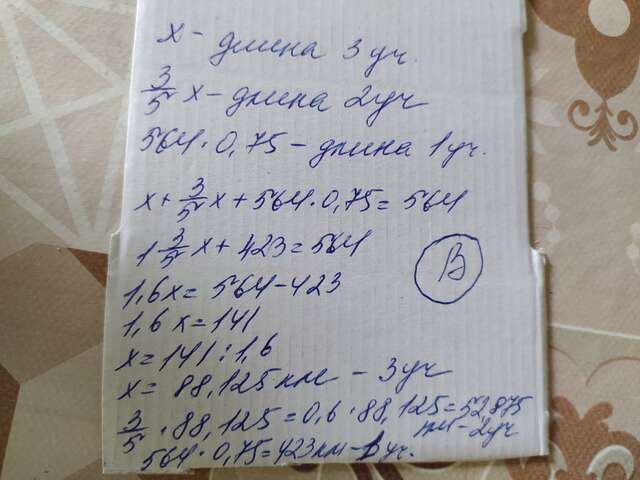 x - длина 3 уч.
3/5 x - длина 2 уч
564 · 0,75 - длина 1 уч.
x + 3/5 x + 564 · 0,75 = 564
1 3/5 x + 423 = 564
В
1,6x = 564 - 423
1,6 x = 141
x = 141 : 1,6
x = 88,125 км - 3 уч
3/5 · 88,125 = 0,6 · 88,125 = 52,875
км - 2 уч
564 · 0,75 = 423 км - 1 уч.